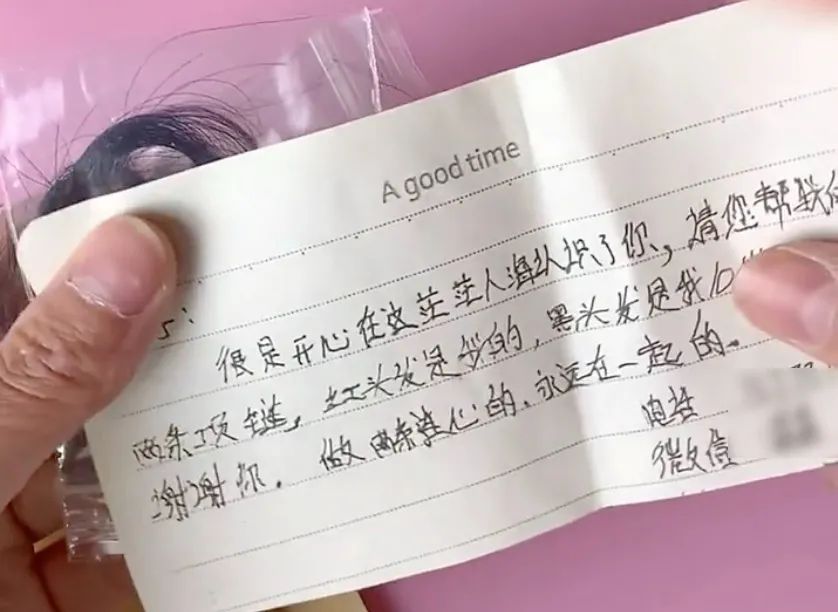 A good time
很是开心在这茫茫人海认识了你，请您帮我
两条项链，红头发是的，黑头发是我10
谢谢你．做两条连心的．永远在一起的．
电话
微信